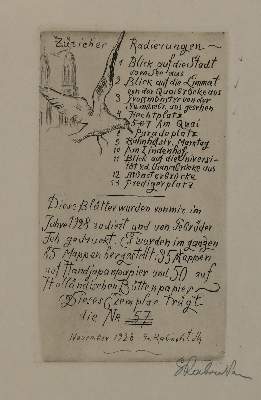 Züricher Radierungen
1 Blick auf die Stadt
vom See aus
2 Blick auf die Limmat
von der Quaibrücke aus
3 Grossmünster von der
aus gesehen
4 Hechtplatz
5-6-7 Am Quai
8 Paradeplatz
9 Bahnhofstr. Montag
10 Am Lindenhof
11 Blick auf die Universi-
tät v.d. Bahnbrücke aus
12 Münsterbrücke
13 Predigerplatz
Diese Blätter wurden von mir im
Jahre 1928 radiert und von Gebrüder
gedruckt. Es wurden im ganzen
85 Mappen hergestellt. 35 Mappen
auf Handjapanpapier und 50 auf
Holländischen Büttenpapier
Dieses Exemplar trägt
die No 57
November 1928